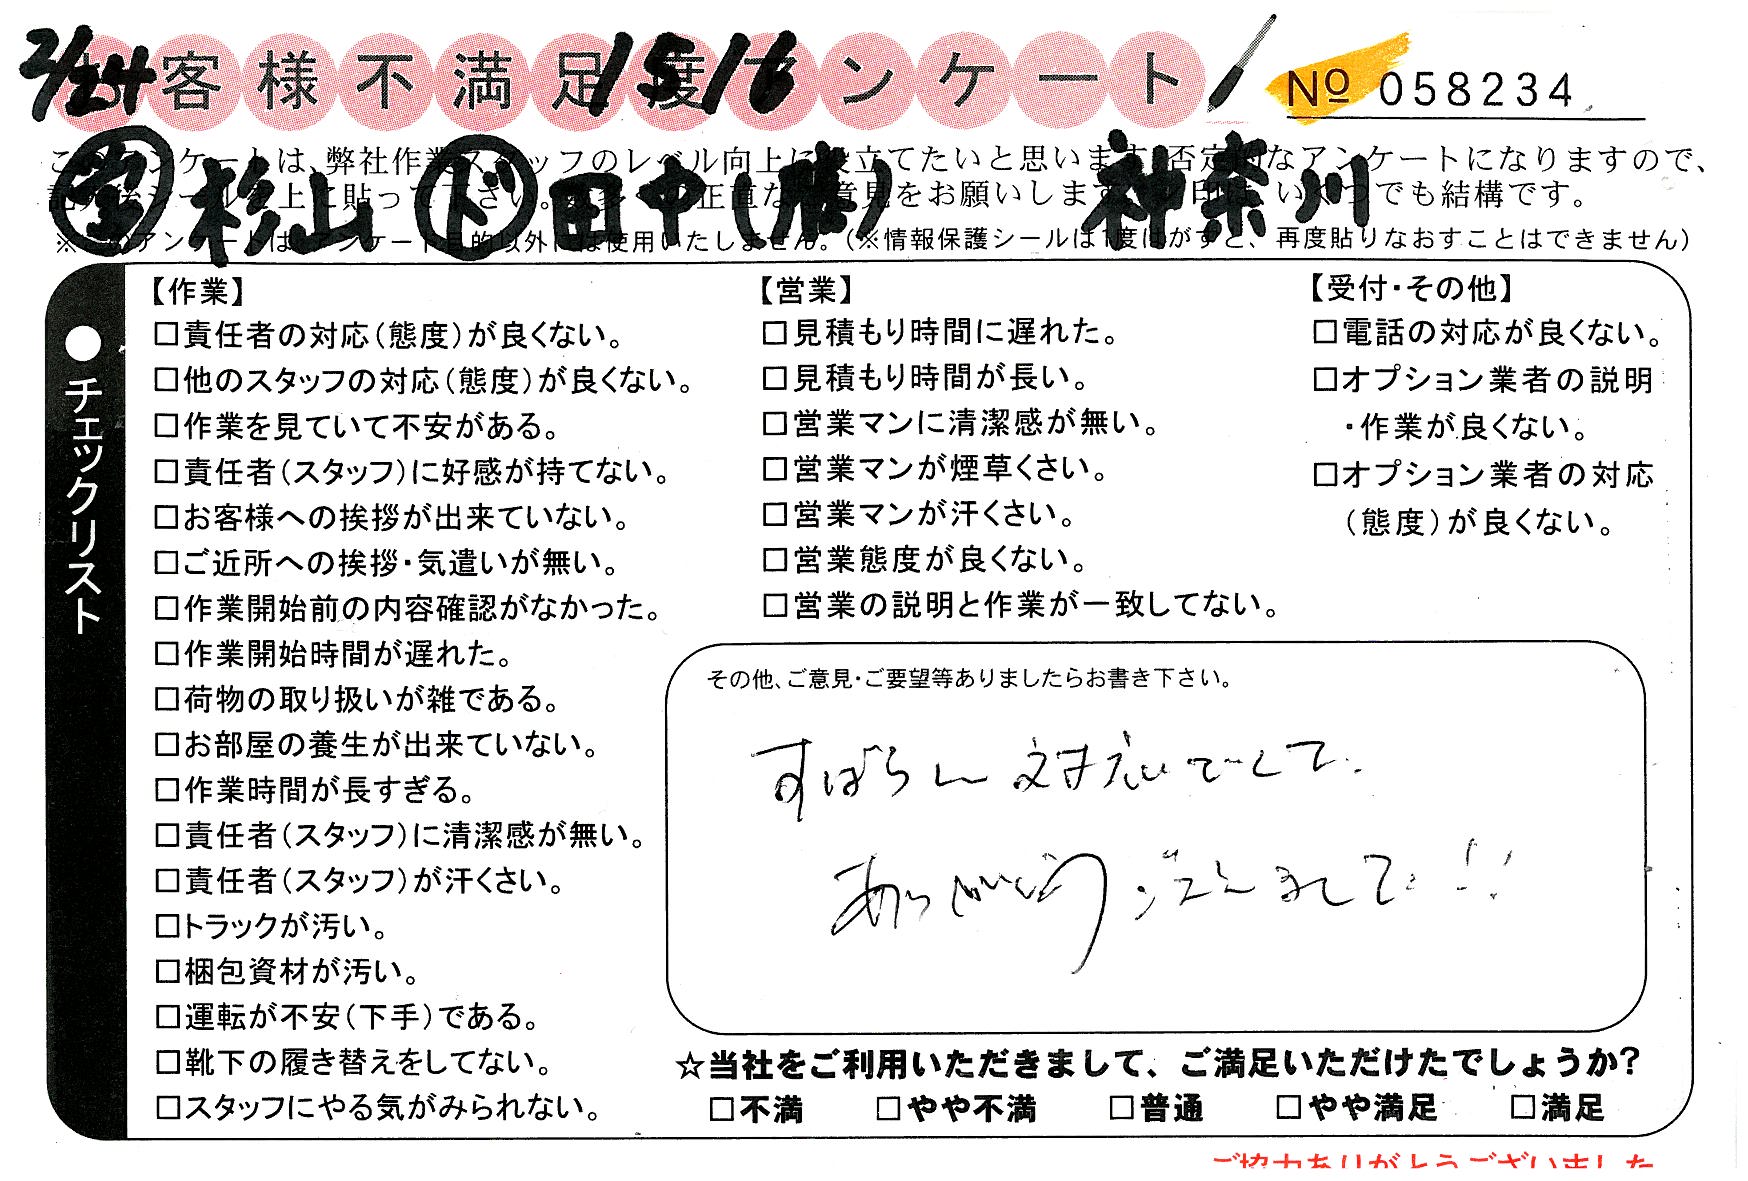 2/24 お客様不満足度アンケート 1516 № 058234
このアンケートは、弊社作業スタッフのレベル向上に役立てたいと思います。否定的なアンケートになりますので、
記入後シールを上に貼って下さい。数多くの正直なご意見をお願いします。 印は、いくつでも結構です。
杉山 ド 田中( ) 神奈川
※このアンケートはアンケート目的以外には使用いたしません。(※情報保護シールは1度はがすと、再度貼りなおすことはできません)
●チェックリスト
【作業】
□責任者の対応(態度)が良くない。
□他のスタッフの対応(態度)が良くない。
□作業を見ていて不安がある。
□責任者(スタッフ)に好感が持てない。
□お客様への挨拶が出来ていない。
□ご近所への挨拶・気遣いが無い。
□作業開始前の内容確認がなかった。
□作業開始時間が遅れた。
□荷物の取り扱いが雑である。
□お部屋の養生が出来ていない。
□作業時間が長すぎる。
□責任者(スタッフ)に清潔感が無い。
□責任者(スタッフ)が汗くさい。
□トラックが汚い。
□梱包資材が汚い。
□運転が不安(下手)である。
□靴下の履き替えをしてない。
□スタッフにやる気がみられない。
【営業】
□見積もり時間に遅れた。
□見積もり時間が長い。
□営業マンに清潔感が無い。
□営業マンが煙草くさい。
□営業マンが汗くさい。
□営業態度が良くない。
□営業の説明と作業が一致してない。
【受付・その他】
□電話の対応が良くない。
□オプション業者の説明
・作業が良くない。
□オプション業者の対応
(態度)が良くない。
その他、ご意見・ご要望等ありましたらお書き下さい。
すばらしい対応でして、
ありがとうございまして!!
☆当社をご利用いただきまして、ご満足いただけたでしょうか?
□不満 □やや不満 □普通 □やや満足 □満足
ご協力ありがとうございました